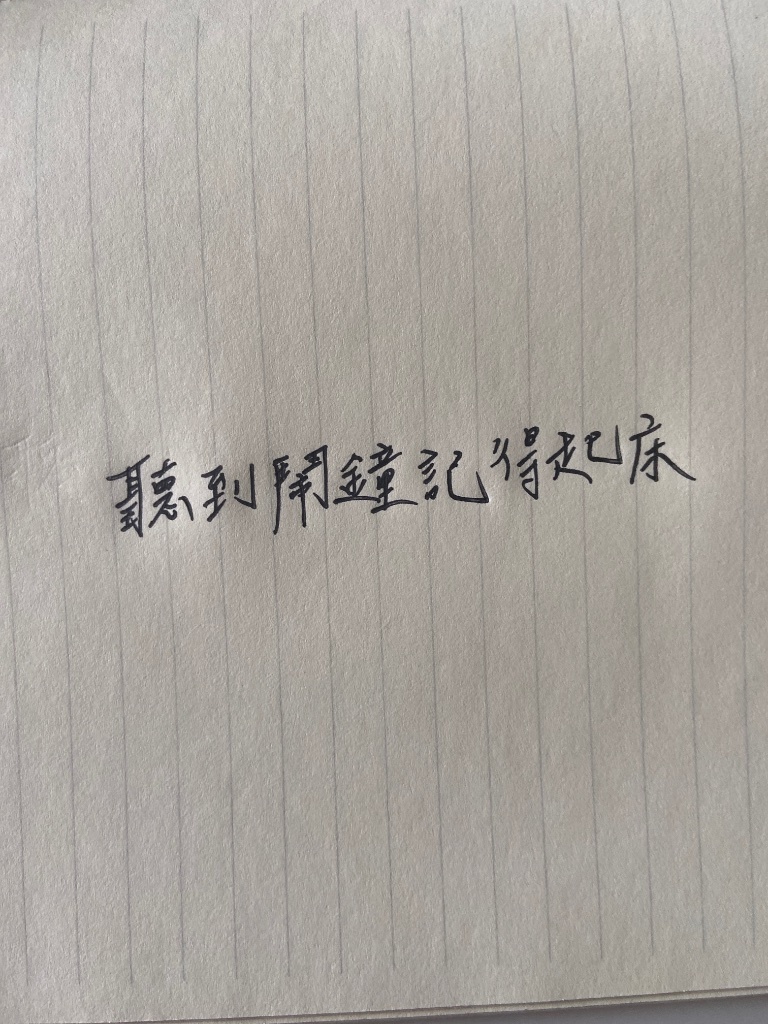 聽到鬧鐘記得起床